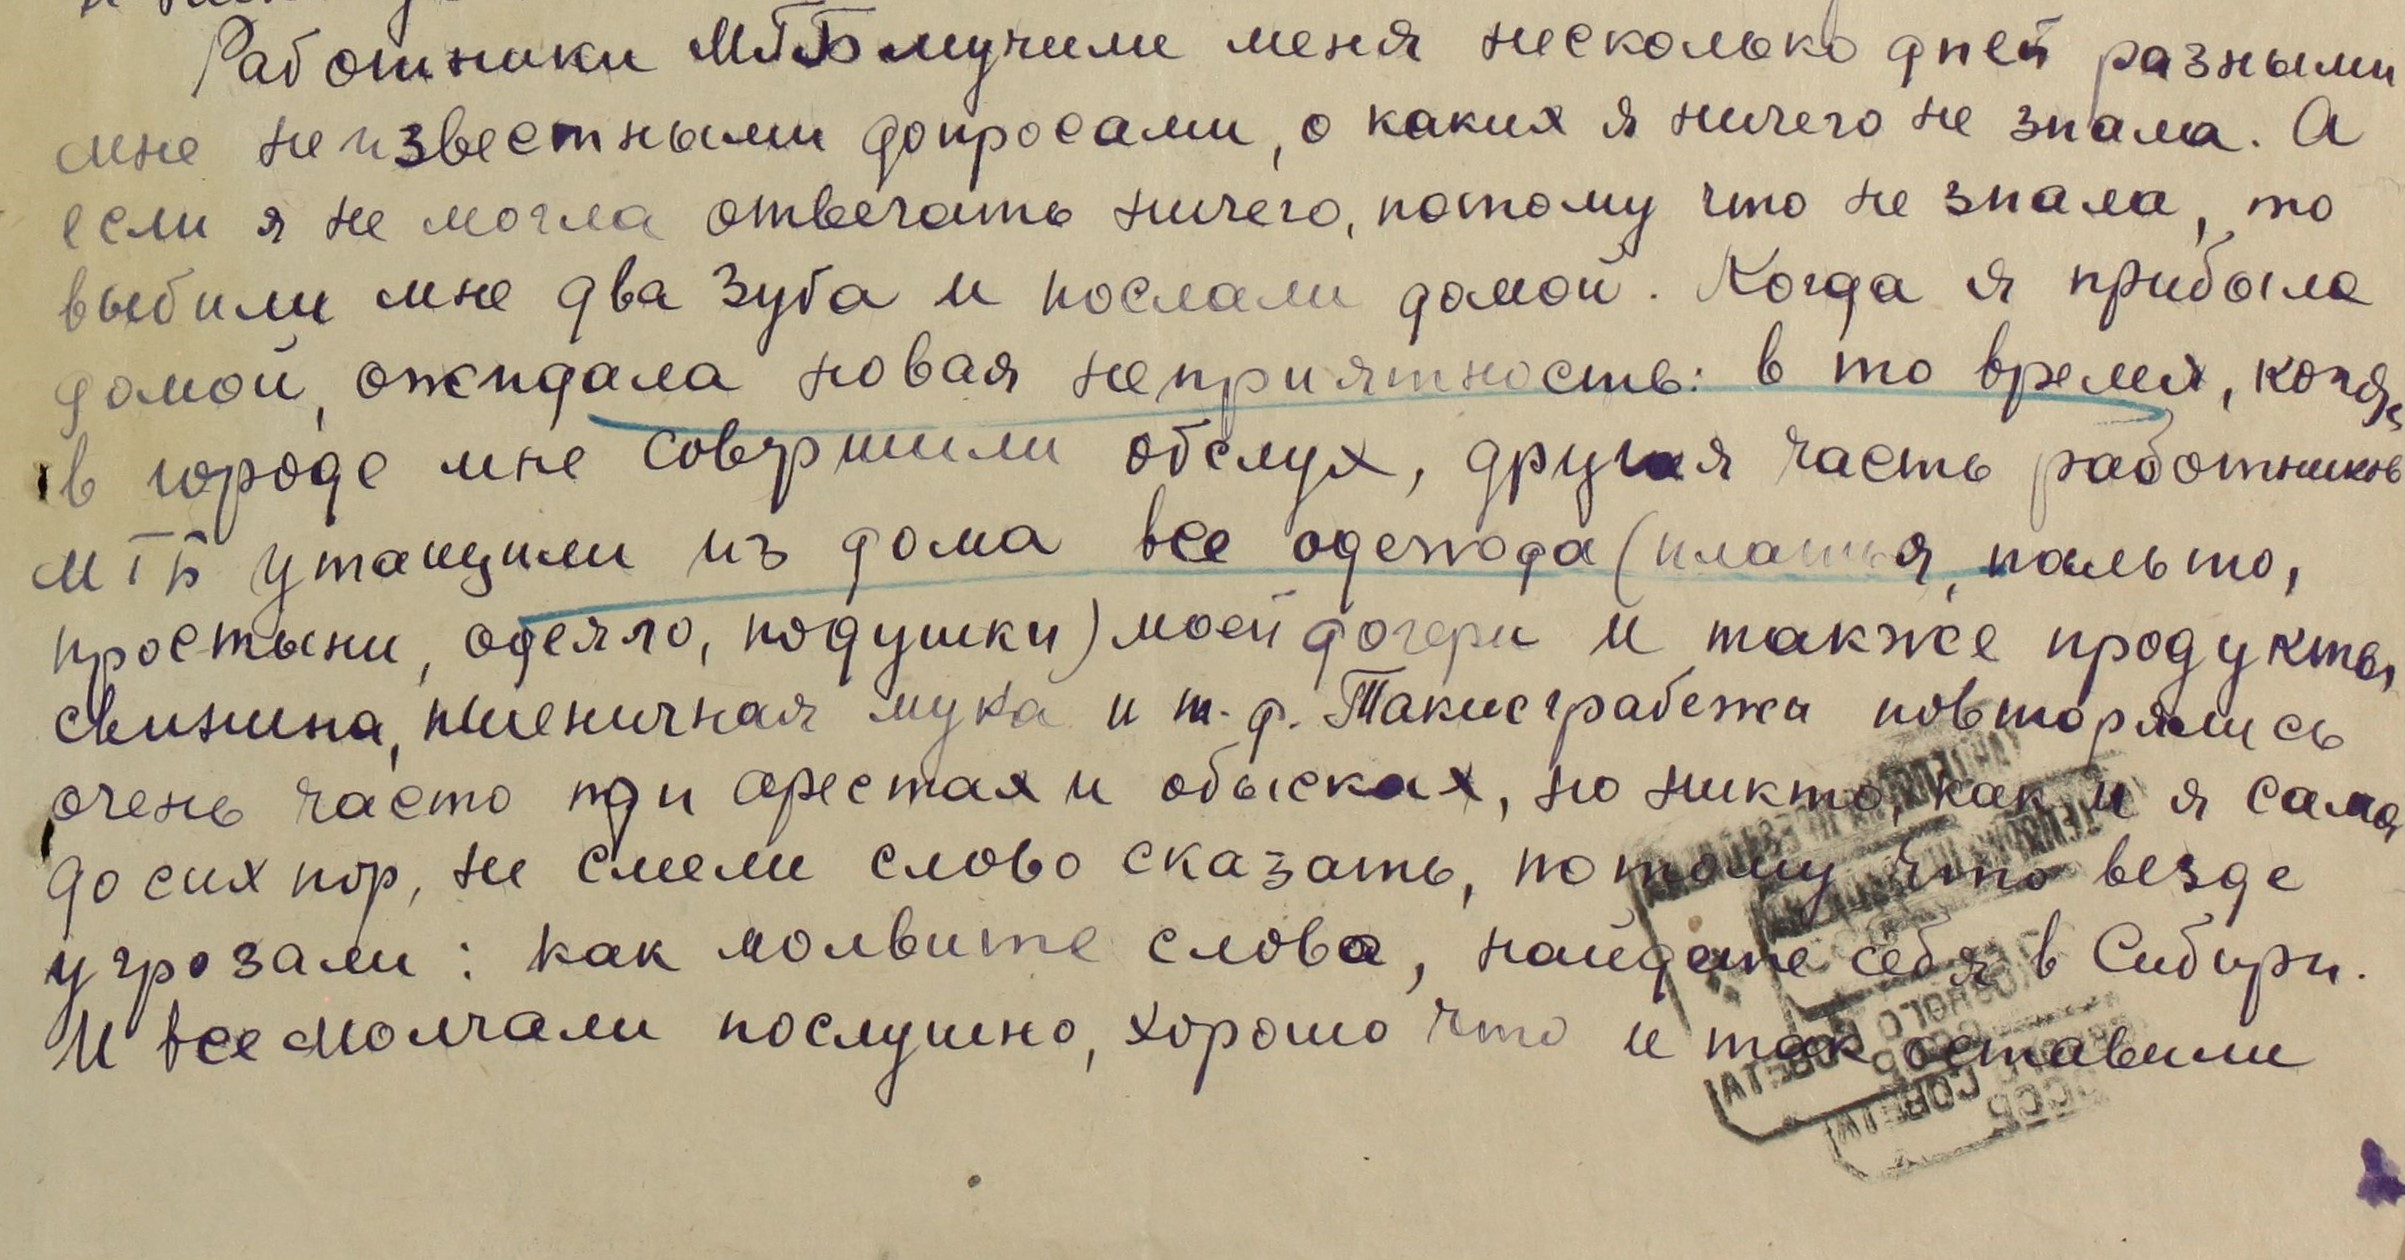 Работники МГБ мучили меня несколько дней разными
мне неизвестными допросами, о каких я ничего не знала. А
если я не могла отвечать ничего, потому что не знала, то
выбили мне два зуба и послали домой. Когда я прибыла
домой, ожидала новая неприятность: в то время, когда
в городе мне совершили обслух, другая часть работников
МГБ утащили из дома все одежода (платья, пальто,
простыни, одеяло, подушки) моей дочери и также продукты,
свинина, пшеничная мука и т.д. Такие грабежи повторялись
очень часто при арестах и обысках, но никто, как и я сама
до сих пор, не смели слово сказать, потому что везде
угрозами: как молвите слова, найдете себя в Сибири.
И все молчали послушно, хорошо что и так оставили